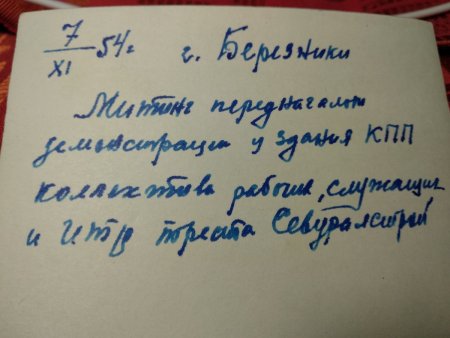 7/XI 54г. г. Березники
Митинг перед началом
демонстрации у здания КПП
коллектива рабочих, служащих
и ИТР треста Севуралстрой